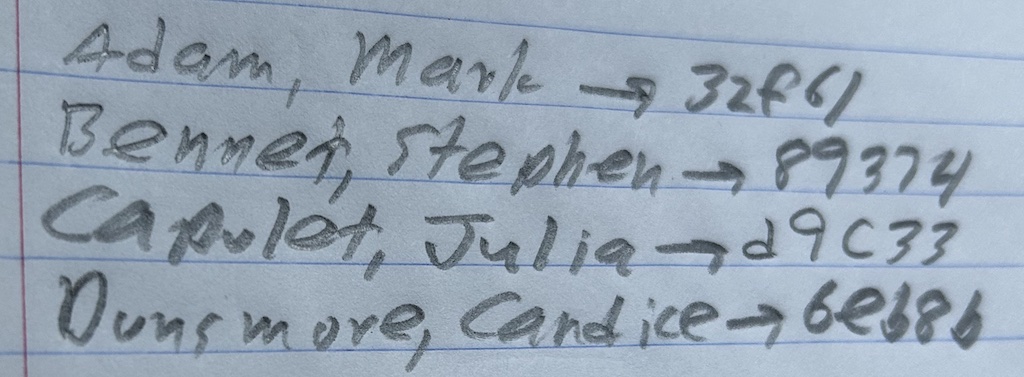 Adam, Mark → 32f61
Bennet, Stephen → 89374
Capulet, Julia → d9c33
Dunsmore, Candice → 6eb8b